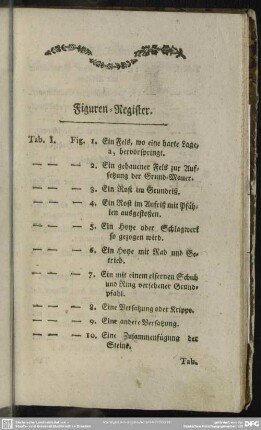 Figuren-Register.
Tab. I. Fig. 1. Ein Fels, wo eine harte Lage,
a, hervorspringt.
— — — 2. Ein gehauener Fels zur Auf-
setzung der Grund-Mauer.
— — — 3. Ein Rost im Grundriß.
— — — 4. Ein Rost im Aufriß mit Pfäh-
len ausgestoßen.
— — — 5. Ein Hoye oder Schlagwerk
so gezogen wird.
— — — 6. Ein Hoye mit Rad und Ge-
trieb.
— — — 7. Ein mit einem eisernen Schuh
und Ring versehener Grund-
pfahl.
— — — 8. Eine Versatzung oder Krippe.
— — — 9. Eine andere Versatzung.
— — — 10. Eine Zusammenfügung der
Steine.
Tab.